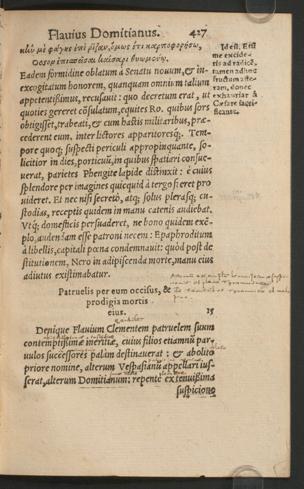 Flauius Domitianus. 427
κἤν με φάγῃς ἐπὶ ῥίζαν, ὅμως ἔτι καρποφορήσω,
Ὅσσον ἐπισπεῖσαι καίσαρι θυομένῳ.
Eadem formidine oblatum à Senatu nouum, & in-
excogitatum honorem, quanquam omnium talium
appetentissimus, recusauit: quo decretum erat, ut
quoties gereret cōsulatum, equites Ro. quibus sors
obtigisset, trabeati, & cum hastis militaribus, præ-
cederent eum, inter lictores apparitoresq́;. Tem-
pore quoq; suspecti periculi appropinquante, so-
licitior in dies, porticuū, in quibus spatiari consue-
uerat, parietes Phengite lapide distinxit: è cuius
splendore per imagines quicquid à tergo fieret pro
uideret. Et nec nisi secretò, atq; solus plerasq; cu-
stodias, receptis quidem in manu catenis audiebat.
Vtq́; domesticis persuaderet, ne bono quidem exē-
plo, audendam esse patroni necem: Epaphroditum
à libellis, capitali pœna condemnauit: quòd post de
stitutionem, Nero in adipiscenda morte, manu eius
adiutus existimabatur.
Idest, Etsi
me excide-
ris ad radicē,
tamen adhuc
fructum affe-
ram, donec
exhauriar à
Cæsare sacri-
ficante.
Patruelis per eum occisus, &
prodigia mortis
eius. 15
Denique Flauium Clementem patruelem suum
contemptissimæ inertiæ, cuius filios etiamnū par-
uulos successores palàm destinauerat: & abolito
priore nomine, alterum Vespasianū appellari ius-
serat, alterum Domitianum: repentè ex tenuissima
suspicione